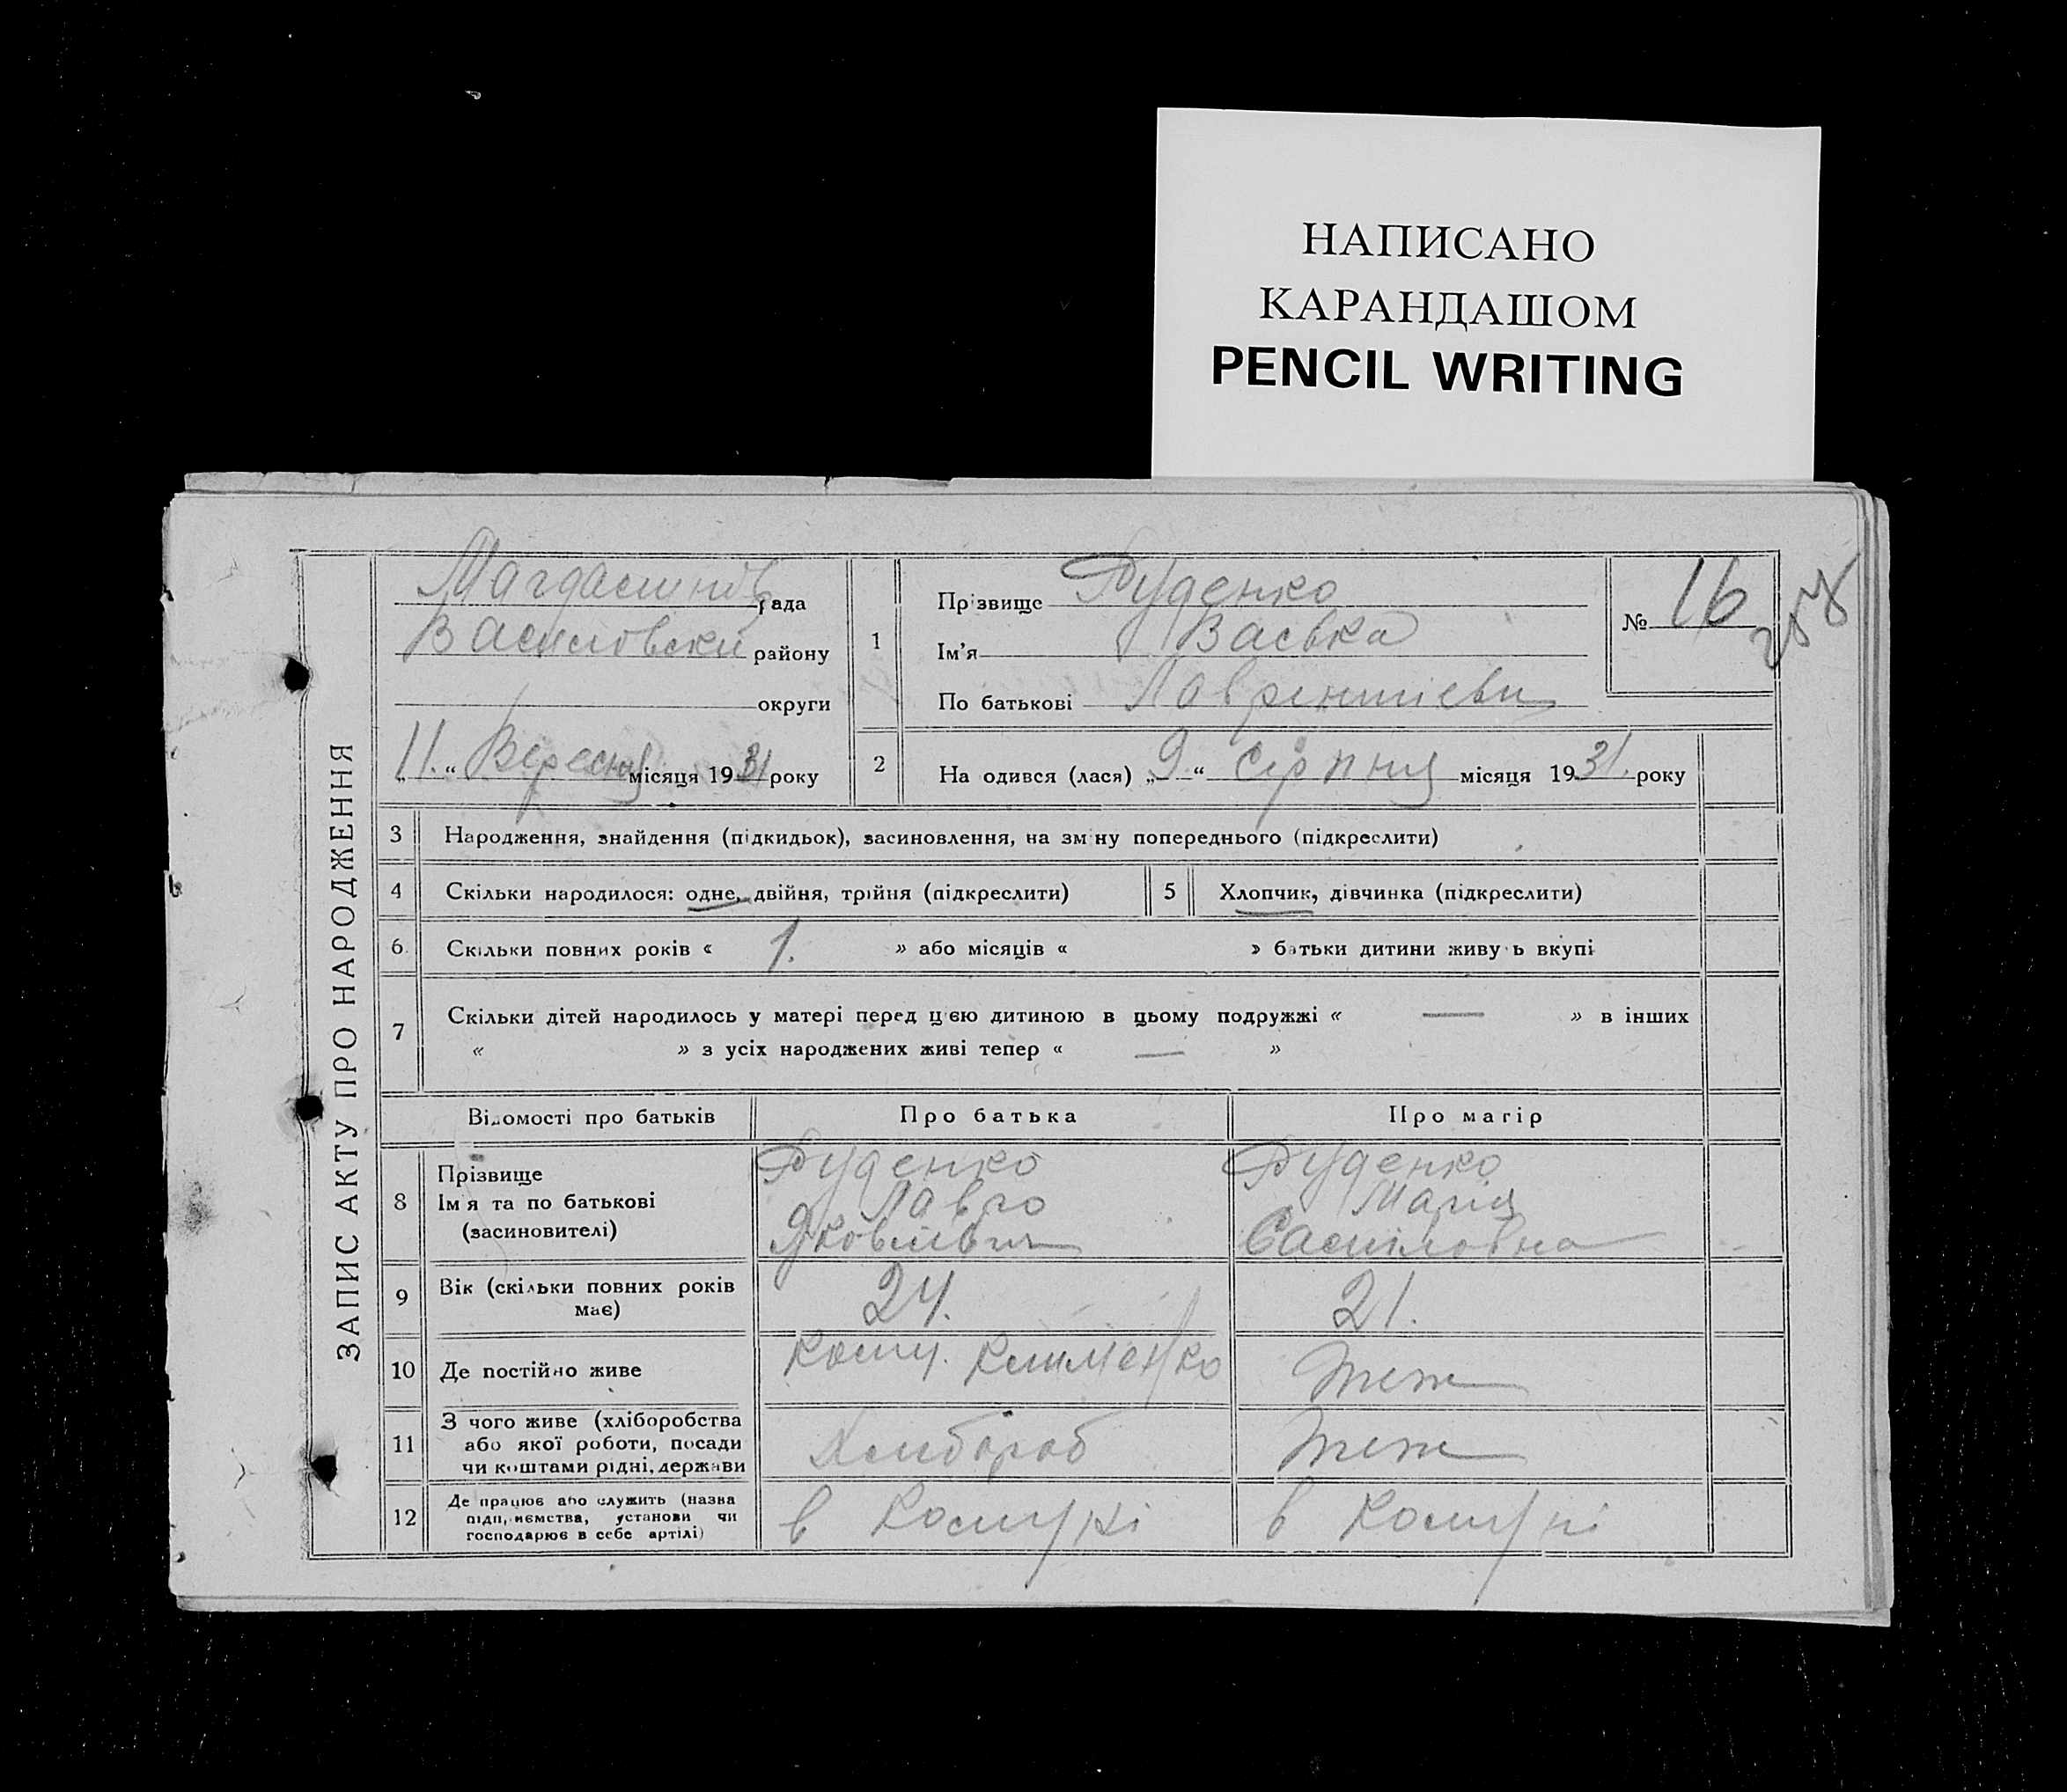 НАПИСАНО
КАРАНДАШОМ
PENCIL WRITING
ЗАПИС АКТУ ПРО НАРОДЖЕННЯ
рада
району
округи
„11.“ Вересня місяця 1931 року
1
Прізвище Руденко
Ім'я Васька
По батькові Лаврентіеви
№ 16
258
2 На одився (лася) „9“ Сірпня місяця 1931. року
3 Народження, знайдення (підкидьок), засиновлення, на зміну попереднього (підкреслити)
4 Скільки народилося: одне, двійня, трійня (підкреслити)
5 Хлопчик, дівчинка (підкреслити)
6 Скільки повних років « 1. » або місяців « » батьки дитини живуть вкупі
7 Скільки дітей народилось у матері перед цією дитиною в цьому подружжі « — » в інших
« » з усіх народжених живі тепер « — »
Відомості про батьків Про батька Про матір
8 Прізвище Руденко Руденко
Ім'я та по батькові Лавро Марія
(засиновителі) Яковлівич
9 Вік (скільки повних років має) 24. 21.
10 Де постійно живе Кому. Клименко теж
11 З чого живе (хліборобства
або якої роботи, посади
чи коштами рідні, держави Хлибороб теж
12 Де працює або служить (назва
підприємства, установи чи
господарює в себе артілі) в Комуні в Комуні